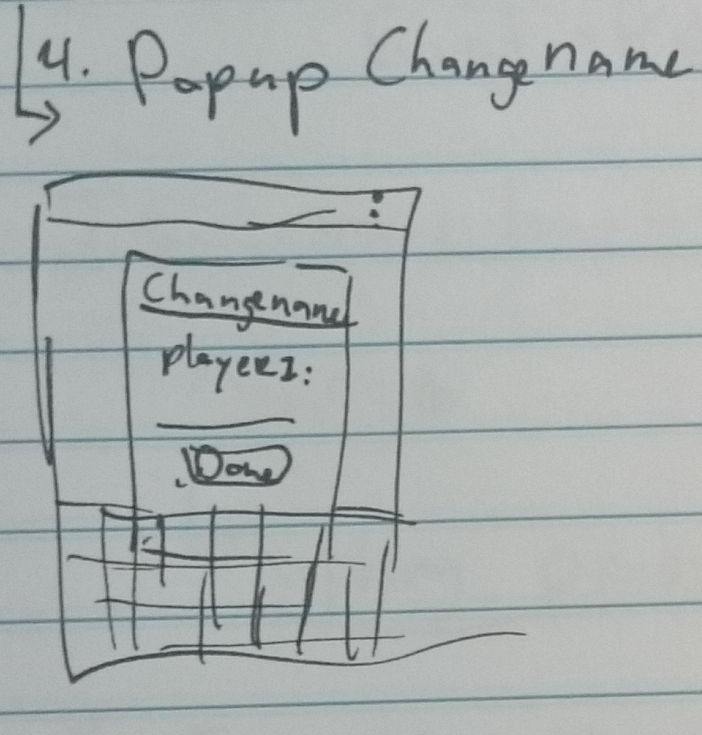 4. Popup Changename
Changename
player1:
Done